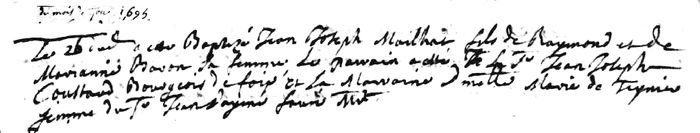 du mois de 1695
Le 26 dud a ette Baptizé Jean Joseph Mailhat fils de Raymond et de
Marianne Baron sa femme Le parrain a esté Sr Jean Joseph
Coustaud Bourgeois de foix et La Marraine melle Marie de
femme du Sr Jean